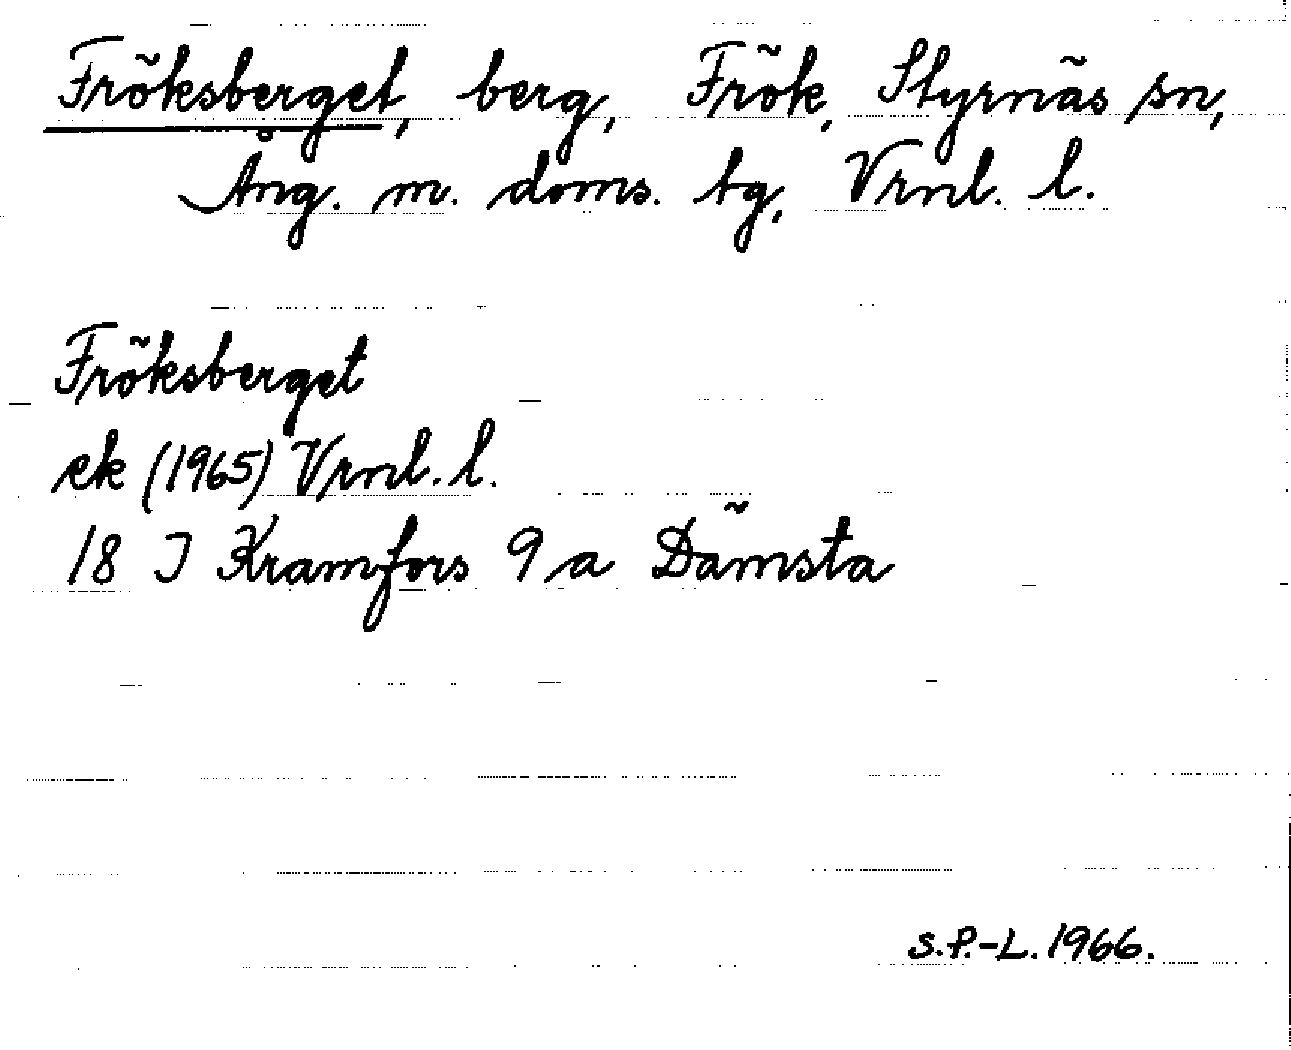 Fröksberget, berg, Frök, Styrnäs sn,
Ång. m. doms. tg, Vrnl. l.
Fröksberget
ek (1965) Vrnl. l.
18 I Kramfors 9 a Dämsta
S.P.-L. 1966.